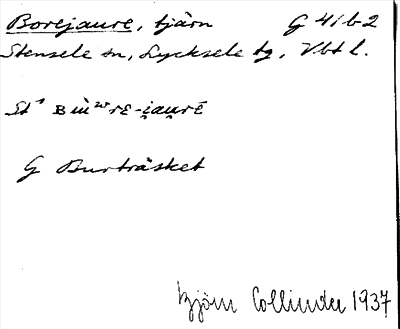 Borejaure, tjärn G 41 b2
Stensele sn, Lycksele tg, Vbt l.
G Burträsket
Björn Collinder 1937